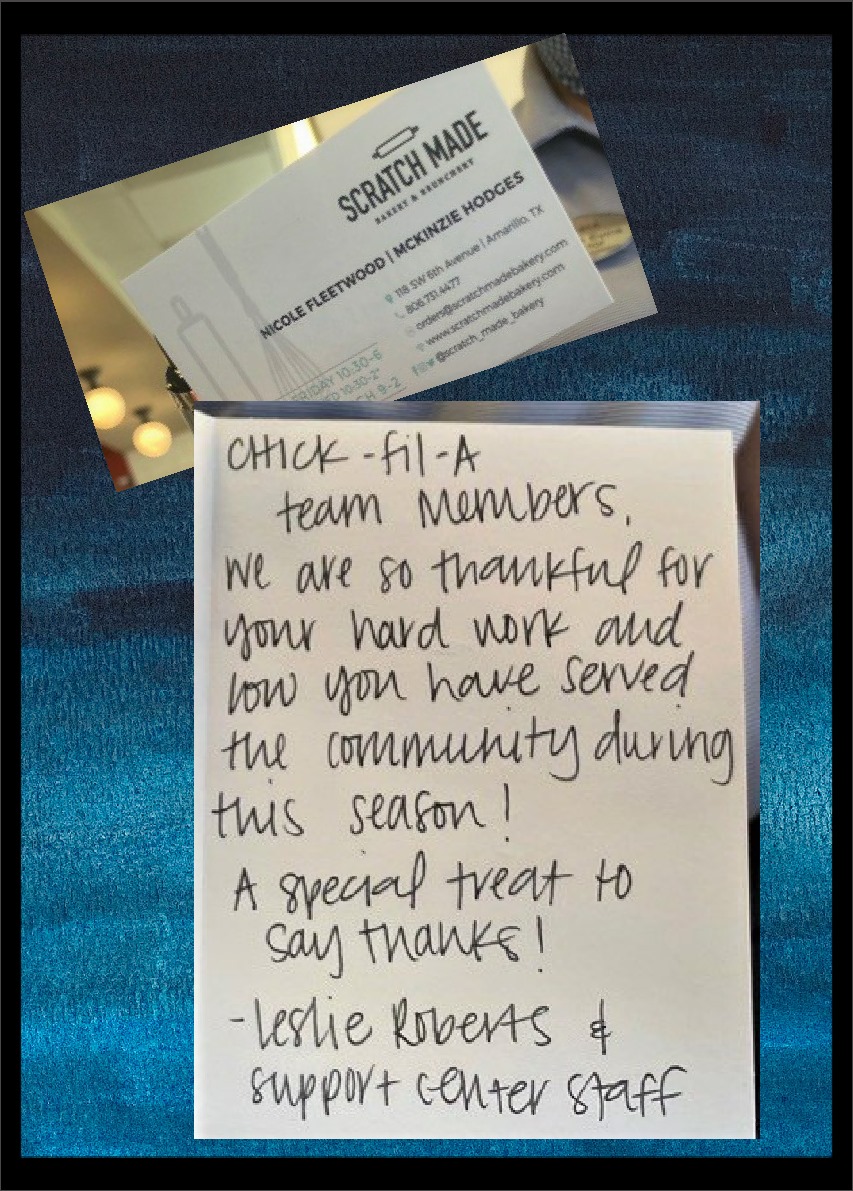 SCRATCH MADE
BAKERY & BRUNCHERY
NICOLE FLEETWOOD | MCKINZIE HODGES
118 SW 6th Avenue | Amarillo, TX
806.731.4477
orders@scratchmadebakery.com
www.scratchmadebakery.com
@scratch_made_bakery
RIDAY 10:30-6
10:30-2
CH 9-2
CHICK-fil-A
team Members,
We are so thankful for
your hard work and
how you have served
the community during
this season!
A special treat to
say thanks!
-Leslie Roberts &
support center staff